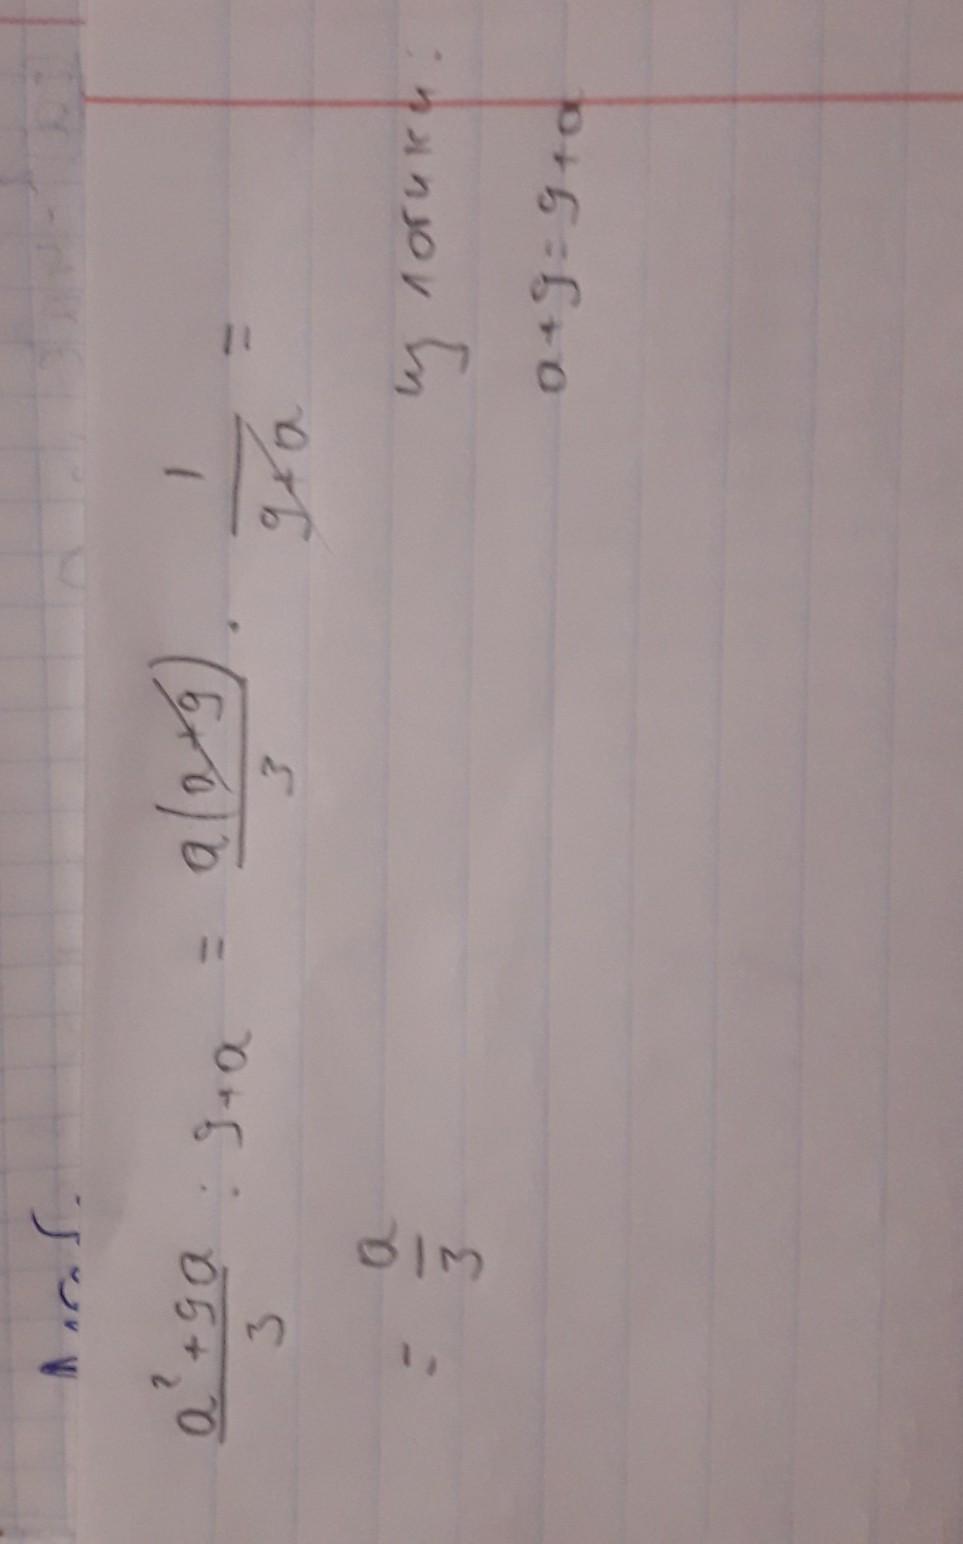 a²+9a/3 : 9+a = a(a+9)/3 · 1/9+a =
= a/3
из логики:
a+9=9+a